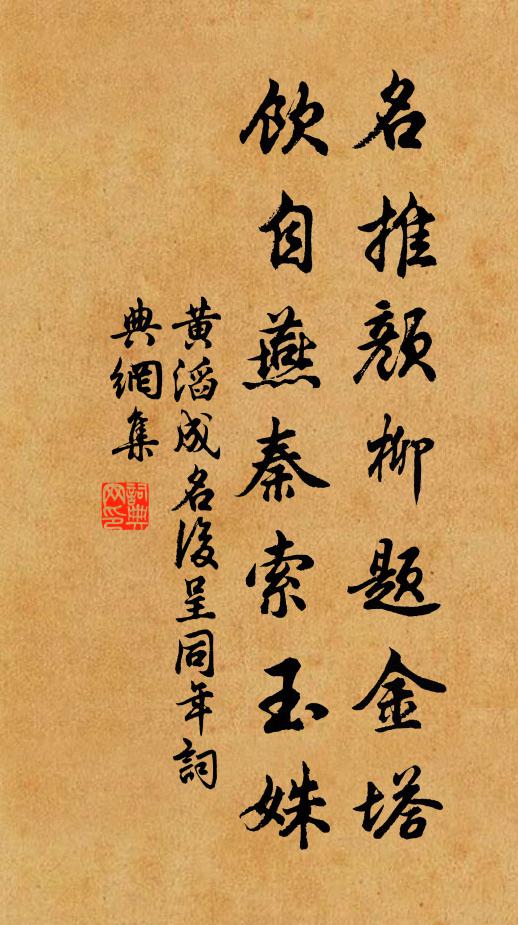 名推颜柳题金塔
飲自燕秦索玉姝
黄滔成名後呈同年詞
典網集
詞典
网印